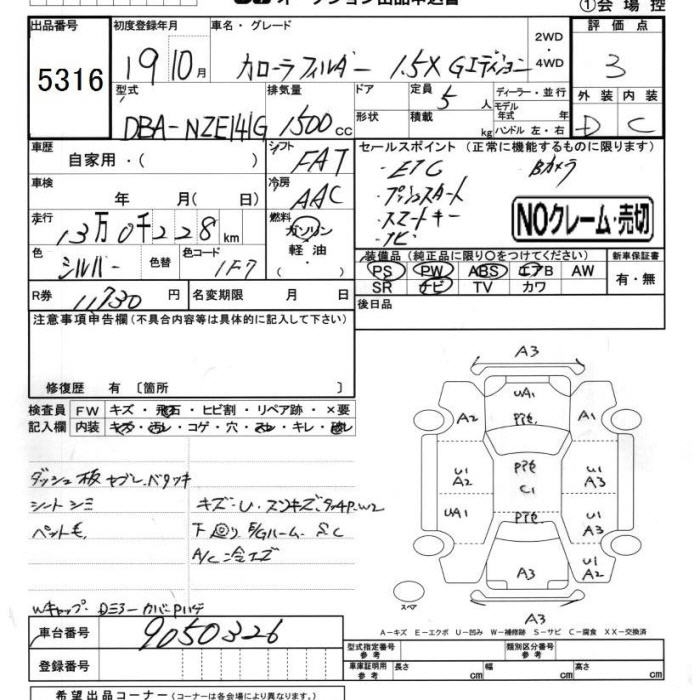 オークション出品申込書
①会場控
出品番号
5316
初度登録年月
19 10月
車名・グレード
カローラフィルダー 1.5X Gエディション
2WD
・
4WD
評価点
3
外装 内装
D C
型式
DBA-NZE141G
排気量
1500cc
ドア
形状
定員
5人
積載
kg
ディーラー・並行
モデル
年式 年
ハンドル 左・右
車歴
自家用・( )
シフト
FAT
車検
年 月( 日)
冷房
AAC
走行
13万0千228km
燃料
ガソリン
軽油
( ・ )
色
シルバー
色替
色コード
1F7
R券
11,730円
名変期限 月 日
セールスポイント (正常に機能するものに限ります)
・ETC Bカメラ
・プッシュスタート
・スマートキー
・ナビ
NOクレーム・売切
装備品 (純正品に限り○をつけてください)
PS PW ABS エアB AW
SR ナビ TV カワ
新車保証書
有・無
後日品
注意事項申告欄(不具合内容等は具体的に記入して下さい)
修復歴 有 〔箇所 〕
検査員 FW キズ・飛石・ヒビ割・リペア跡・×要
記入欄 内装 キズ・汚レ・コゲ・穴・スレ・キレ・破レ
ダッシュ板
シートシミ
ペット毛
キズ・U・スリキズ. タッチP.W2
下回り
A/C冷エズ
Wキャップ
A3
A2 UA1 A1
Pキセ
U1
A2
Pキセ
C1
U1
A3
UA1
Pキセ
A3
U1
A2
A3
スペア
A−キズ E−エクボ U−凹み W−補修跡 S−サビ C−腐食 XX−交換済
車台番号
9050326
登録番号
型式指定番号
参考
類別区分番号
参考
車庫証明用
参考
長さ cm
幅 cm
高さ cm
希望出品コーナー(コーナーは各会場により異なります。)